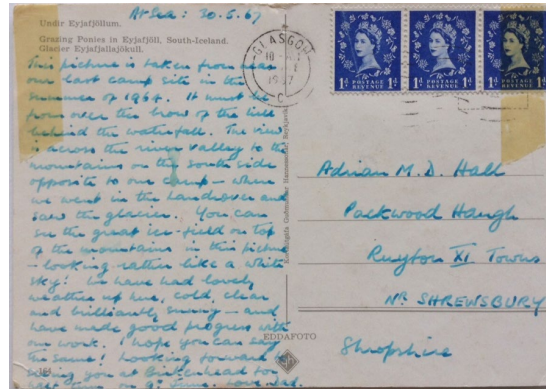 At Sea: 30.5.67
Undir Eyjafjöllum.
Grazing Ponies in Eyjafjöll, South-Iceland.
Glacier Eyjafjallajökull.
This picture is taken from near
our last camp site in the
summer of 1964. It must be
from over the brow of the hill
behind the waterfall. The view
is across the river valley to the
mountains on the south side
opposite to our camp - where
we went in the Landrover and
saw the glacier. You can
see the great ice-field on top
of the mountains in this picture
- looking rather like a white
sky! We have had lovely
weather up here, cold, clear
and brilliantly sunny - and
have made good progress with
our work. I hope you can say
the same! Looking forward
seeing you at Birkenhead for
half term on 9th June. Love Dad.
EDDAFOTO
GLASGOW
C
1d POSTAGE REVENUE 1d
1d POSTAGE REVENUE 1d
1d POSTAGE REVENUE 1d
Adrian M. D. Hall
Packwood Haugh
Ruyton XI Towns
Nr. SHREWSBURY
Shropshire